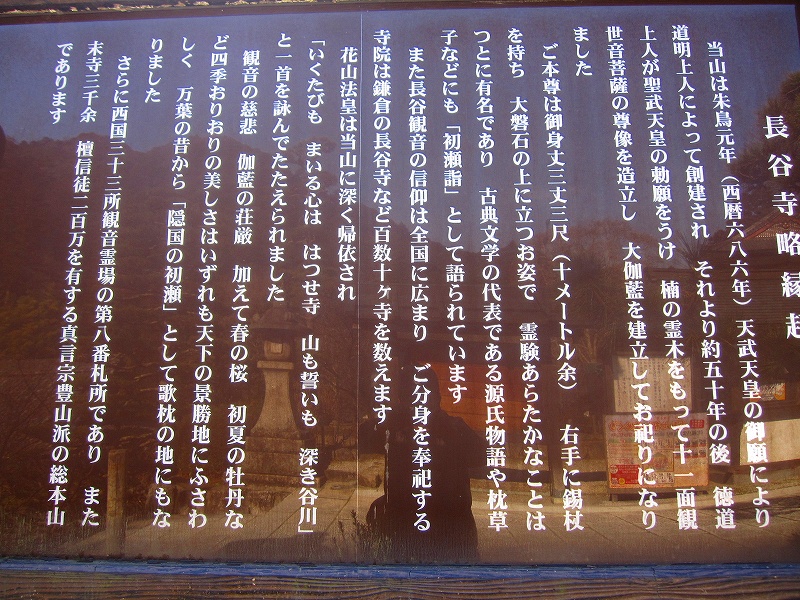 長谷寺略縁起
当山は朱鳥元年（西暦六八六年）天武天皇の御願により
道明上人によって創建され　それより約五十年の後　徳道
上人が聖武天皇の勅願をうけ　楠の霊木をもって十一面観
世音菩薩の尊像を造立し　大伽藍を建立してお祀りになり
ました
ご本尊は御身丈三丈三尺（十メートル余）　右手に錫杖
を持ち　大磐石の上に立つお姿で　霊験あらたかなことは
つとに有名であり　古典文学の代表である源氏物語や枕草
子などにも「初瀬詣」として語られています
また長谷観音の信仰は全国に広まり　ご分身を奉祀する
寺院は鎌倉の長谷寺など百数十ヶ寺を数えます
花山法皇は当山に深く帰依され
「いくたびも　まいる心は　はつせ寺　山も誓いも　深き谷川」
と一首を詠んでたたえられました
観音の慈悲　伽藍の荘厳　加えて春の桜　初夏の牡丹な
ど四季おりおりの美しさはいずれも天下の景勝地にふさわ
しく　万葉の昔から「隠国の初瀬」として歌枕の地にもな
りました
さらに西国三十三所観音霊場の第八番札所であり　また
末寺三千余　檀信徒二百万を有する真言宗豊山派の総本山
であります